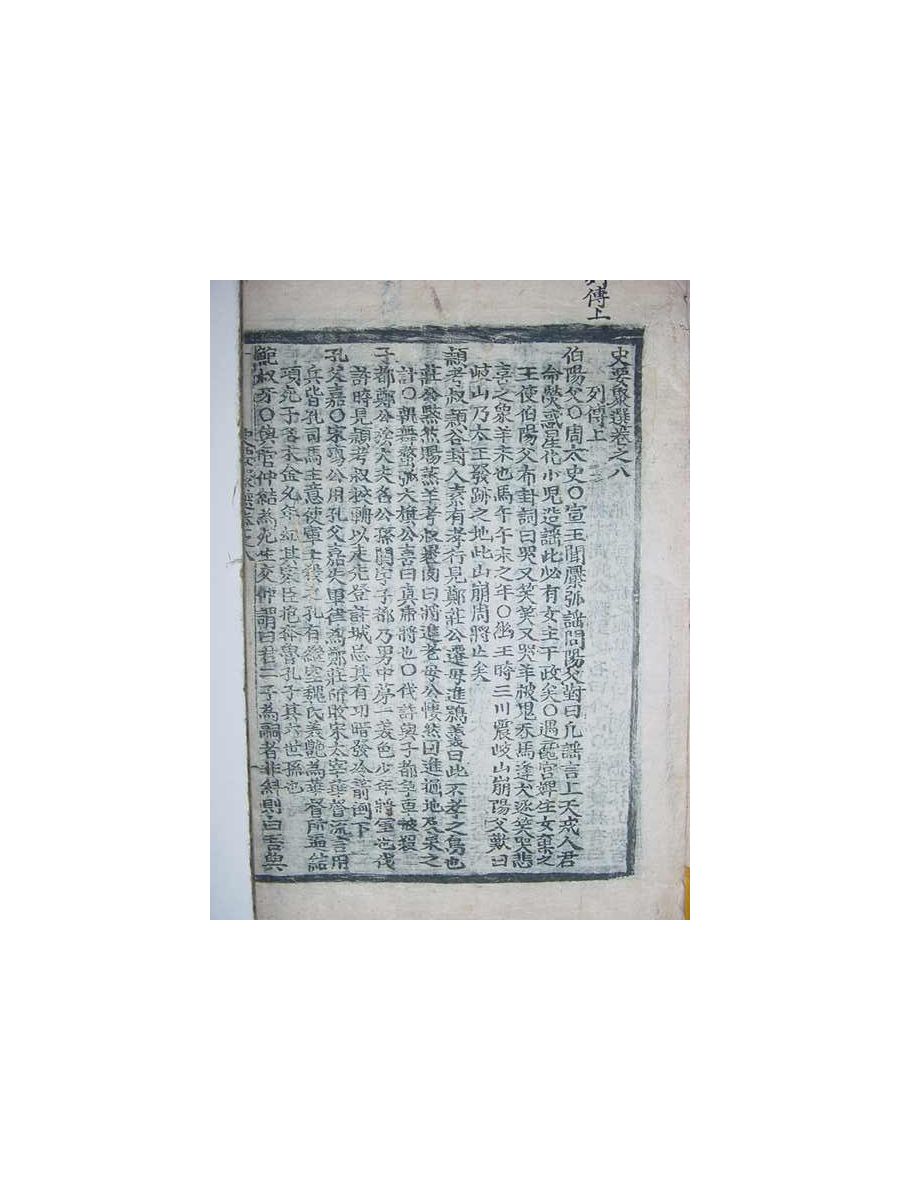 列傳上
史要聚選卷之八
列傳上
伯陽父○周太史○宣王聞檿弧謠問陽父對曰凡謠言上天戒人君
命熒惑星化小兒造謠此必有女主干政矣○遇後宮婢生女棄之
王使伯陽父布卦詞曰哭又笑笑又哭羊被鬼吞馬逢犬逐笑哭悲
喜之象羊未也馬午午未之年○幽王時三川震岐山崩陽父歎曰
岐山乃太王發跡之地此山崩周將亡矣
穎考叔穎谷封人素有孝行見鄭莊公遷母進鴞義曰此不孝之鳥也
莊公黙然賜蒸羊考叔裹肉曰將進老母公悽然曰進過地及泉之
計○親舞螯弧大旗公喜曰真虎將也○伐許與子都爭車被殺
子都鄭公族大夫名公孫閼字子都乃男中第一美色少年將軍也伐
許時見穎考叔挾輈以走先登許城忌其有功暗發冷箭倒下
孔父嘉○宋殤公用孔父嘉失軍伍為鄭莊所敗宋太宰華督流言用
兵皆孔司馬主意使軍士殺之孔有繼室魏氏美艷為華督所逼結
項死子曰木金父年幼其家臣抱奔魯孔子其六世孫也
鮑叔牙○與管仲結為死生交仲謂曰君三子為嗣者非糾則白吾與